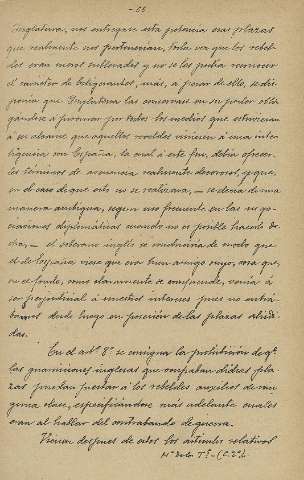 - 26
Inglaterra, nos entregara esta potencia esas plazas
que realmente nos pertenecian, toda vez que los rebel-
des eran moros sublevados y no se les podia reconocer
el carácter de beligerantes, más, a pesar de ello, se dis-
ponia que Inglaterra las conservase en su poder obli-
gandose á procurar por todos los medios que estuviesen
á su alcance que aquellos rebeldes viniesen á una inte-
ligencia con España, la cual á este fin, debia ofrecer-
les terminos de avenencia realmente decorosos, y que,
en el caso de que esto no se realizara, – se decia de una
manera ambigua, segun uso frecuente en las nego-
ciaciones diplomáticas cuando no es posible hacerlo de
otra, – el soberano inglés se conduciria de modo que
el de España viese que era bien amigo suyo, cosa que,
en el fondo, como claramente se comprende, venia á
ser perjudicial á nuestros intereses pues no entrá-
bamos desde luego en posesión de las plazas aludi-
das.
En el artº 8º se consigna la prohibición de qº
las guarniciones inglesas que ocupaban dichas pla-
zas puedan prestar á los rebeldes auxilios de nin-
guna clase, especificándose más adelante cuales
eran al hablar del contrabando de guerra.
Vienen despues de estos los articulos relativos